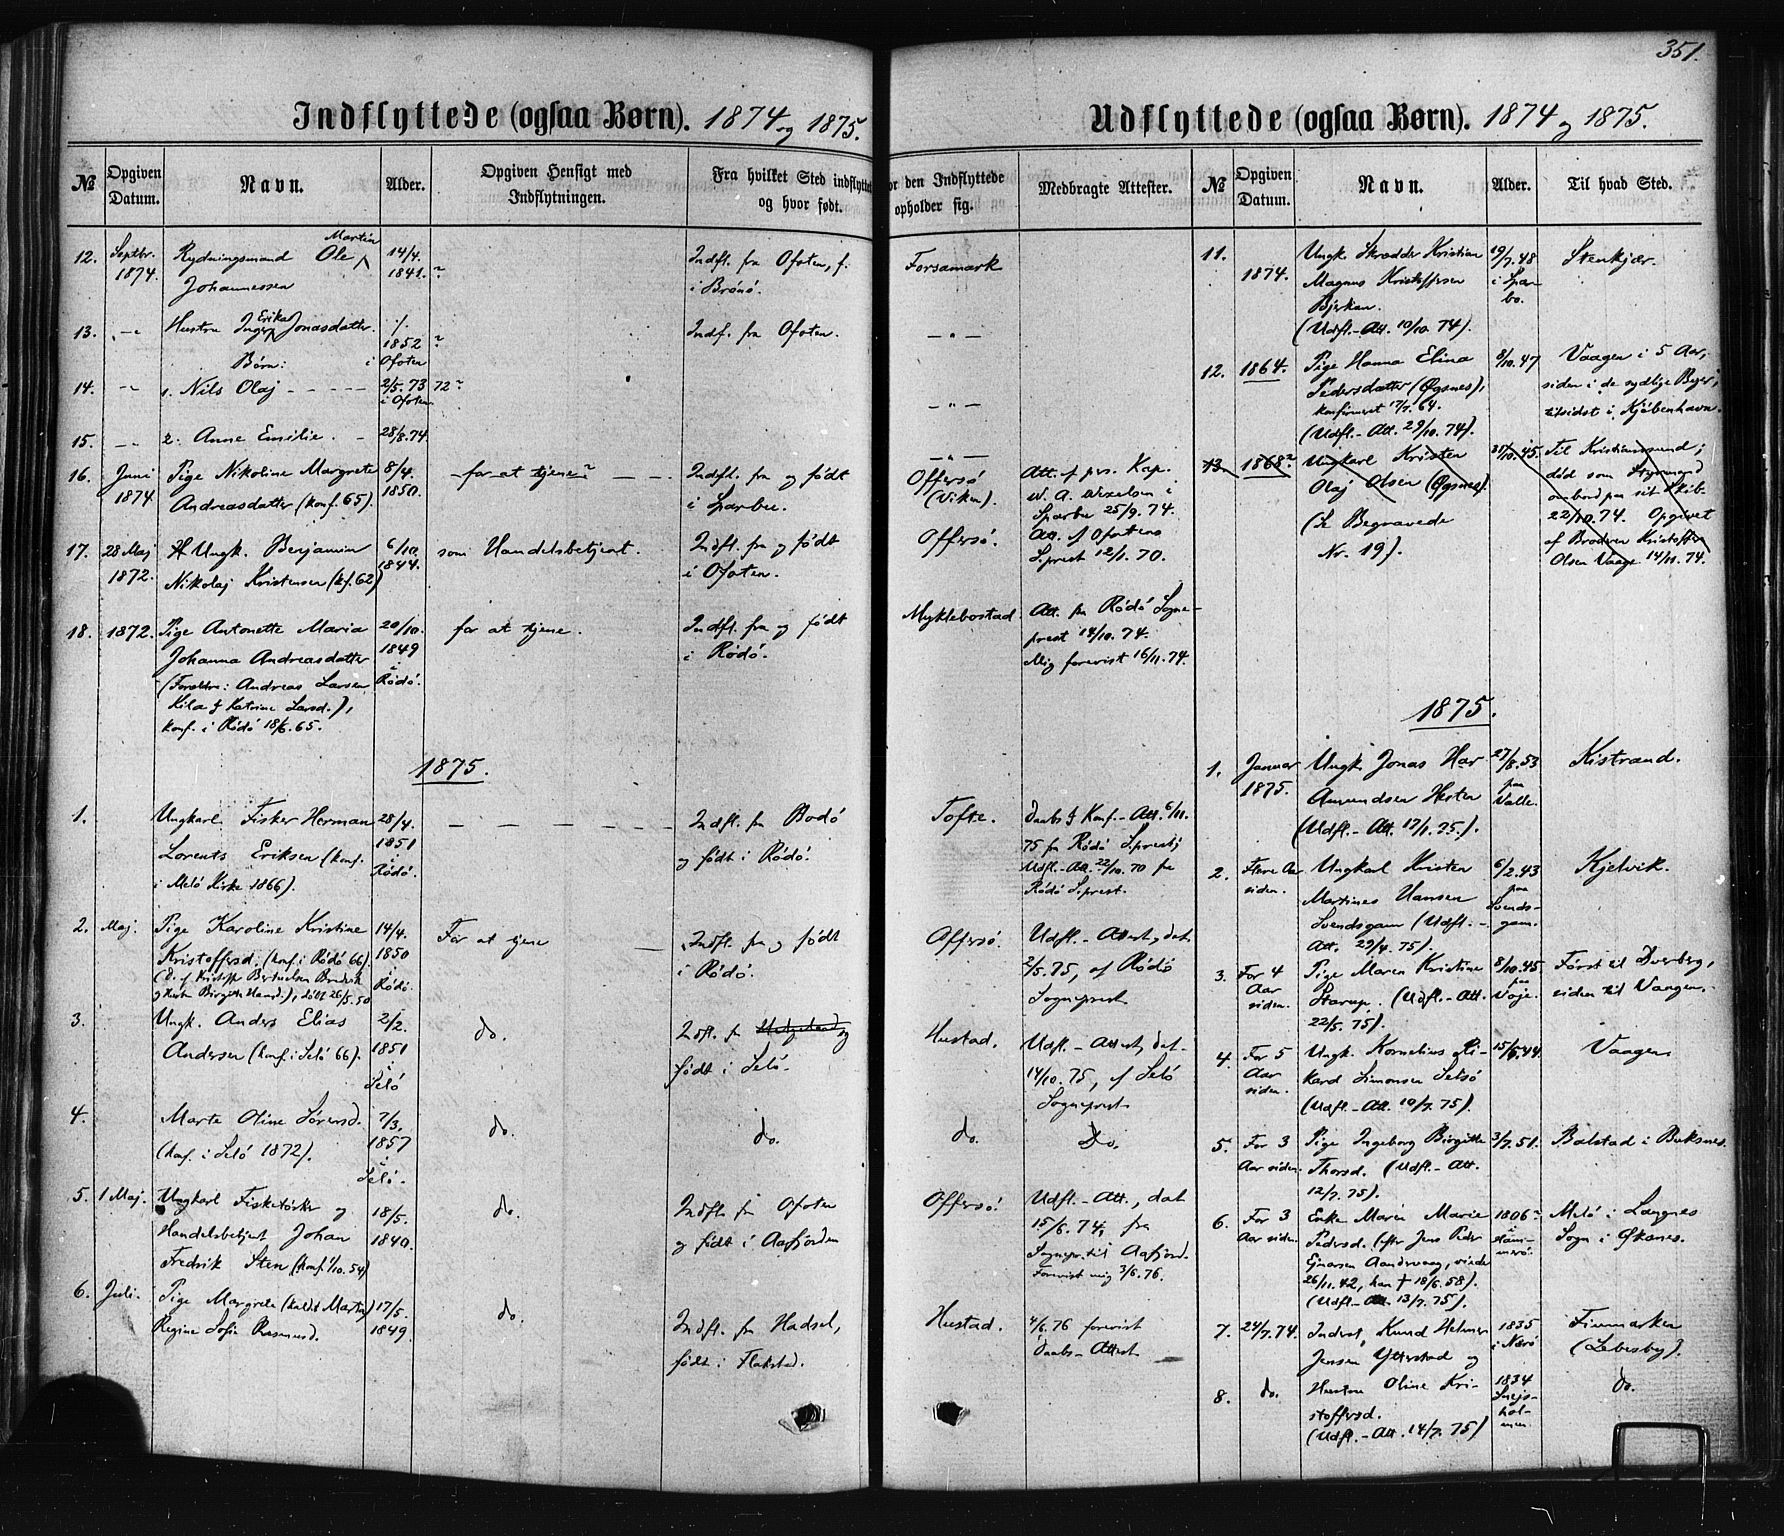 351.
Indflyttede (ogsaa Børn). 1874 og 1875.
№
Opgiven Datum.
Navn.
Alder.
Opgiven Hensigt med Indflytningen.
Fra hvilket Sted indflyttet og hvor født.
or den Indflyttede opholder sig.
Medbragte Attester.
12.
Septbr. 1874.
Rydningsmand Ole Martin
Johannessen
14/4. 1841.?
Indfl. fra Ofoten, f.
i Brönö.
Forsamark
13.
Hustru Inger Erika Jonasdatter.
1852? i Ofoten
Indf. fra Ofoten.
— " —
Børn:
14.
1. Nils Olaj
2/5. 73 72?
i Ofoten
— " —
15.
2. Anne Emilie.
28/8. 74.
— " —
16.
Juni 1874
Pige Nikoline Margrete
Andreasdatter (konf. 65).
8/4. 1850.
for at tjene?
Indfl. fra og födt
i Sparbu.
Offersö (Viken).
Att. f pers. Kap.
W. A. Wexelsen i
Sparbu 25/9. 74.
17.
28 Maj 1872.
Ungk. Benjamin
Nikolaj Kristensen (kf. 62)
6/10. 1844.
som Handelsbetjent.
Indfl. fra og födt
i Ofoten.
Offersö.
Att. f Ofotens
S.prest 12/1. 70.
18.
1872.
Pige Antonette Maria
Johanna Andreasdatter
(Foreldre: Andreas Larsen
Kila & Katrine Larsd.),
konf. i Rödö 18/6. 65.
20/10. 1849 i Rödö.
for at tjene.
Indfl. fra og födt
i Rödö.
Myklebostad
Att. fra Rödö Sogne-
prest 14/10. 74.
Mig forevist 16/11. 74.
1875.
1.
Ungkarl Fisker Herman
Lorents Eriksen (konf.
i Melö Kirke 1866).
28/4. 1851 i Rödö.
Indfl. fra Bodö
og födt i Rödö.
Tofte.
Daabs & Konf.-Att. 6/11.
75 fra Rödö S.prest;
Udfl.-Att. 22/10. 70 fra
Rödö S.prest.
2.
Maj.
Pige Karoline Kristine
Kristoffersd. (konf. i Rödö 66).
14/4. 1850 i Rödö.
For at tjene
Indfl. fra og födt
i Rödö.
Offersö.
Udfl.-Attest, dat.
2/5. 75, af Rödö
Sogneprest
3.
Ungk. Anders Elias
Andersen (konf. iSelö 66).
2/2. 1851 i Selö
do.
Indfl. fr Helgeland og
födt i Selö.
Hustad.
Udfl.-Attest, dat.
14/10. 75, af Selö
Sogneprest
4.
Marta Oline Sörensd.
(konf. i Selö 1872).
7/3. 1857 i Selö.
do.
do.
do.
Do.
5.
1 Maj.
Ungkarl Fisketörker og
Handelsbetjent Johan
Fredrik Sten (konf. 1/10. 54)
18/5. 1840.
do.
Indfl. fra Ofoten
og födt i Aafjorden
Offersö.
Udfl.-Att., dat
15/6. 74, fra
Sognepr. til Aafjord.
Forevist mig 3/6. 76.
6.
Juli.
Pige Margrete (kaldt Marta)
Regine Sofie Rasmusd.
17/5. 1849.
do.
Indfl. fra Hadsel,
födt i Flakstad.
Hustad.
4/6. 76 forevist
Daabs-Attest
Udflyttede (ogsaa Børn). 1874 og 1875.
№
Opgiven Datum.
Navn.
Alder.
Til hvad Sted.
11.
1874.
Ungk. Skrædder Kristian
Magnus Kristoffersen
Bjerkan.
(Udfl.-Att. 10/10. 74).
19/7. 48 i Sparbo.
Stenkjær.
12.
1864.
Pige Hanna Elina
Pedersdatter (Øgsnes),
konfirmeret 17/7. 64.
(Udfl.-Att. 29/10. 74).
8/10. 47
Vaagen i 5 Aar,
siden i de sydlige Byer,
tilsidst i Kjöbenhavn.
13.
1868?
Ungkarl Kristen
Olaj Olsen (Øgsnes).
(Se Begravede
Nr. 19).
/10. 45.
Til Kristianssund;
död som Styrmand
ombord paa sit Skib
22/10. 74. Opgivet
af Broderen Kristoffer
Olsen Vaage 14/11. 74.
1875.
1.
Januar 1875.
Ungk. Jonas Har
Amundsen Hesten
(Udfl.-Att. 17/1. 75).
27/8. 53 paa Valle.
Kistrand.
2.
Flere Aar siden.
Ungkarl Kristen
Martines Hansen
Svendsgam (Udfl.-
Att. 29/4. 75).
6/2. 43 paa Svendsgam.
Kjelvik.
3.
For 4 Aar siden.
Pige Maren Kristine
Starup. (Udfl.-Att.
22/5. 75).
8/10. 45 paa Voje.
Först til Dverberg,
siden til Vaagen.
4.
For 5 Aar siden.
Ungk. Kornelius Ri-
kard Simonsen Seksö
(Udfl.-Att. 10/7. 75).
15/6. 44.
Vaagen
5.
For 3 Aar siden.
Pige Ingeborg Birgitte
Thorsd. (Udfl.-Att.
12/7. 75).
3/7. 51.
Balstad i Buksnes.
6.
For 3 Aar siden.
Enke Maren Marie
Pedersd. (efter Jens Peder
Ejnarsen Aandervaag, viede
26/11. 42, han † 18/6. 58).
(Udfl.-Att. 13/7. 75).
1806?
Melö i Langnes
Sogn i Øksnes.
7.
24/7. 74.
Inderst Knud Helmer
Jensen Ytterstad og
1835 i Nærö
Finmarken
(Lebesby).
8.
do.
Hustru Oline Kri-
stoffersd.
(Udfl.-Att. 14/7. 75)
1834
do.